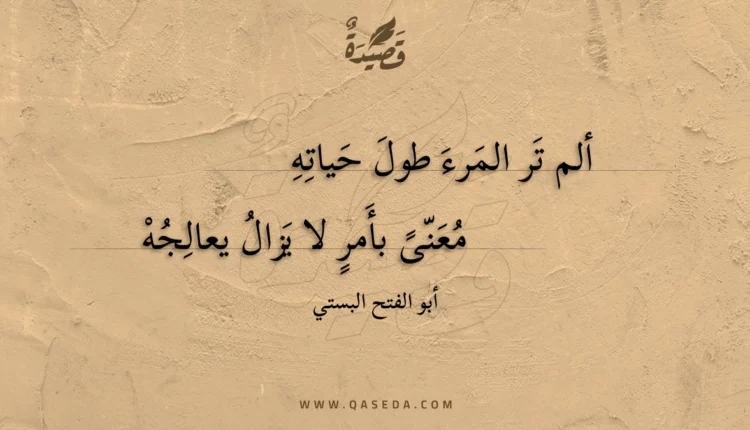 قَصِيدَةٌ
ألم تَر المَرءَ طولَ حَياتِهِ
مُعَنّىً بأَمرٍ لا يَزالُ يعالِجُهْ
أبو الفتح البستي
WWW.QASEDA.COM